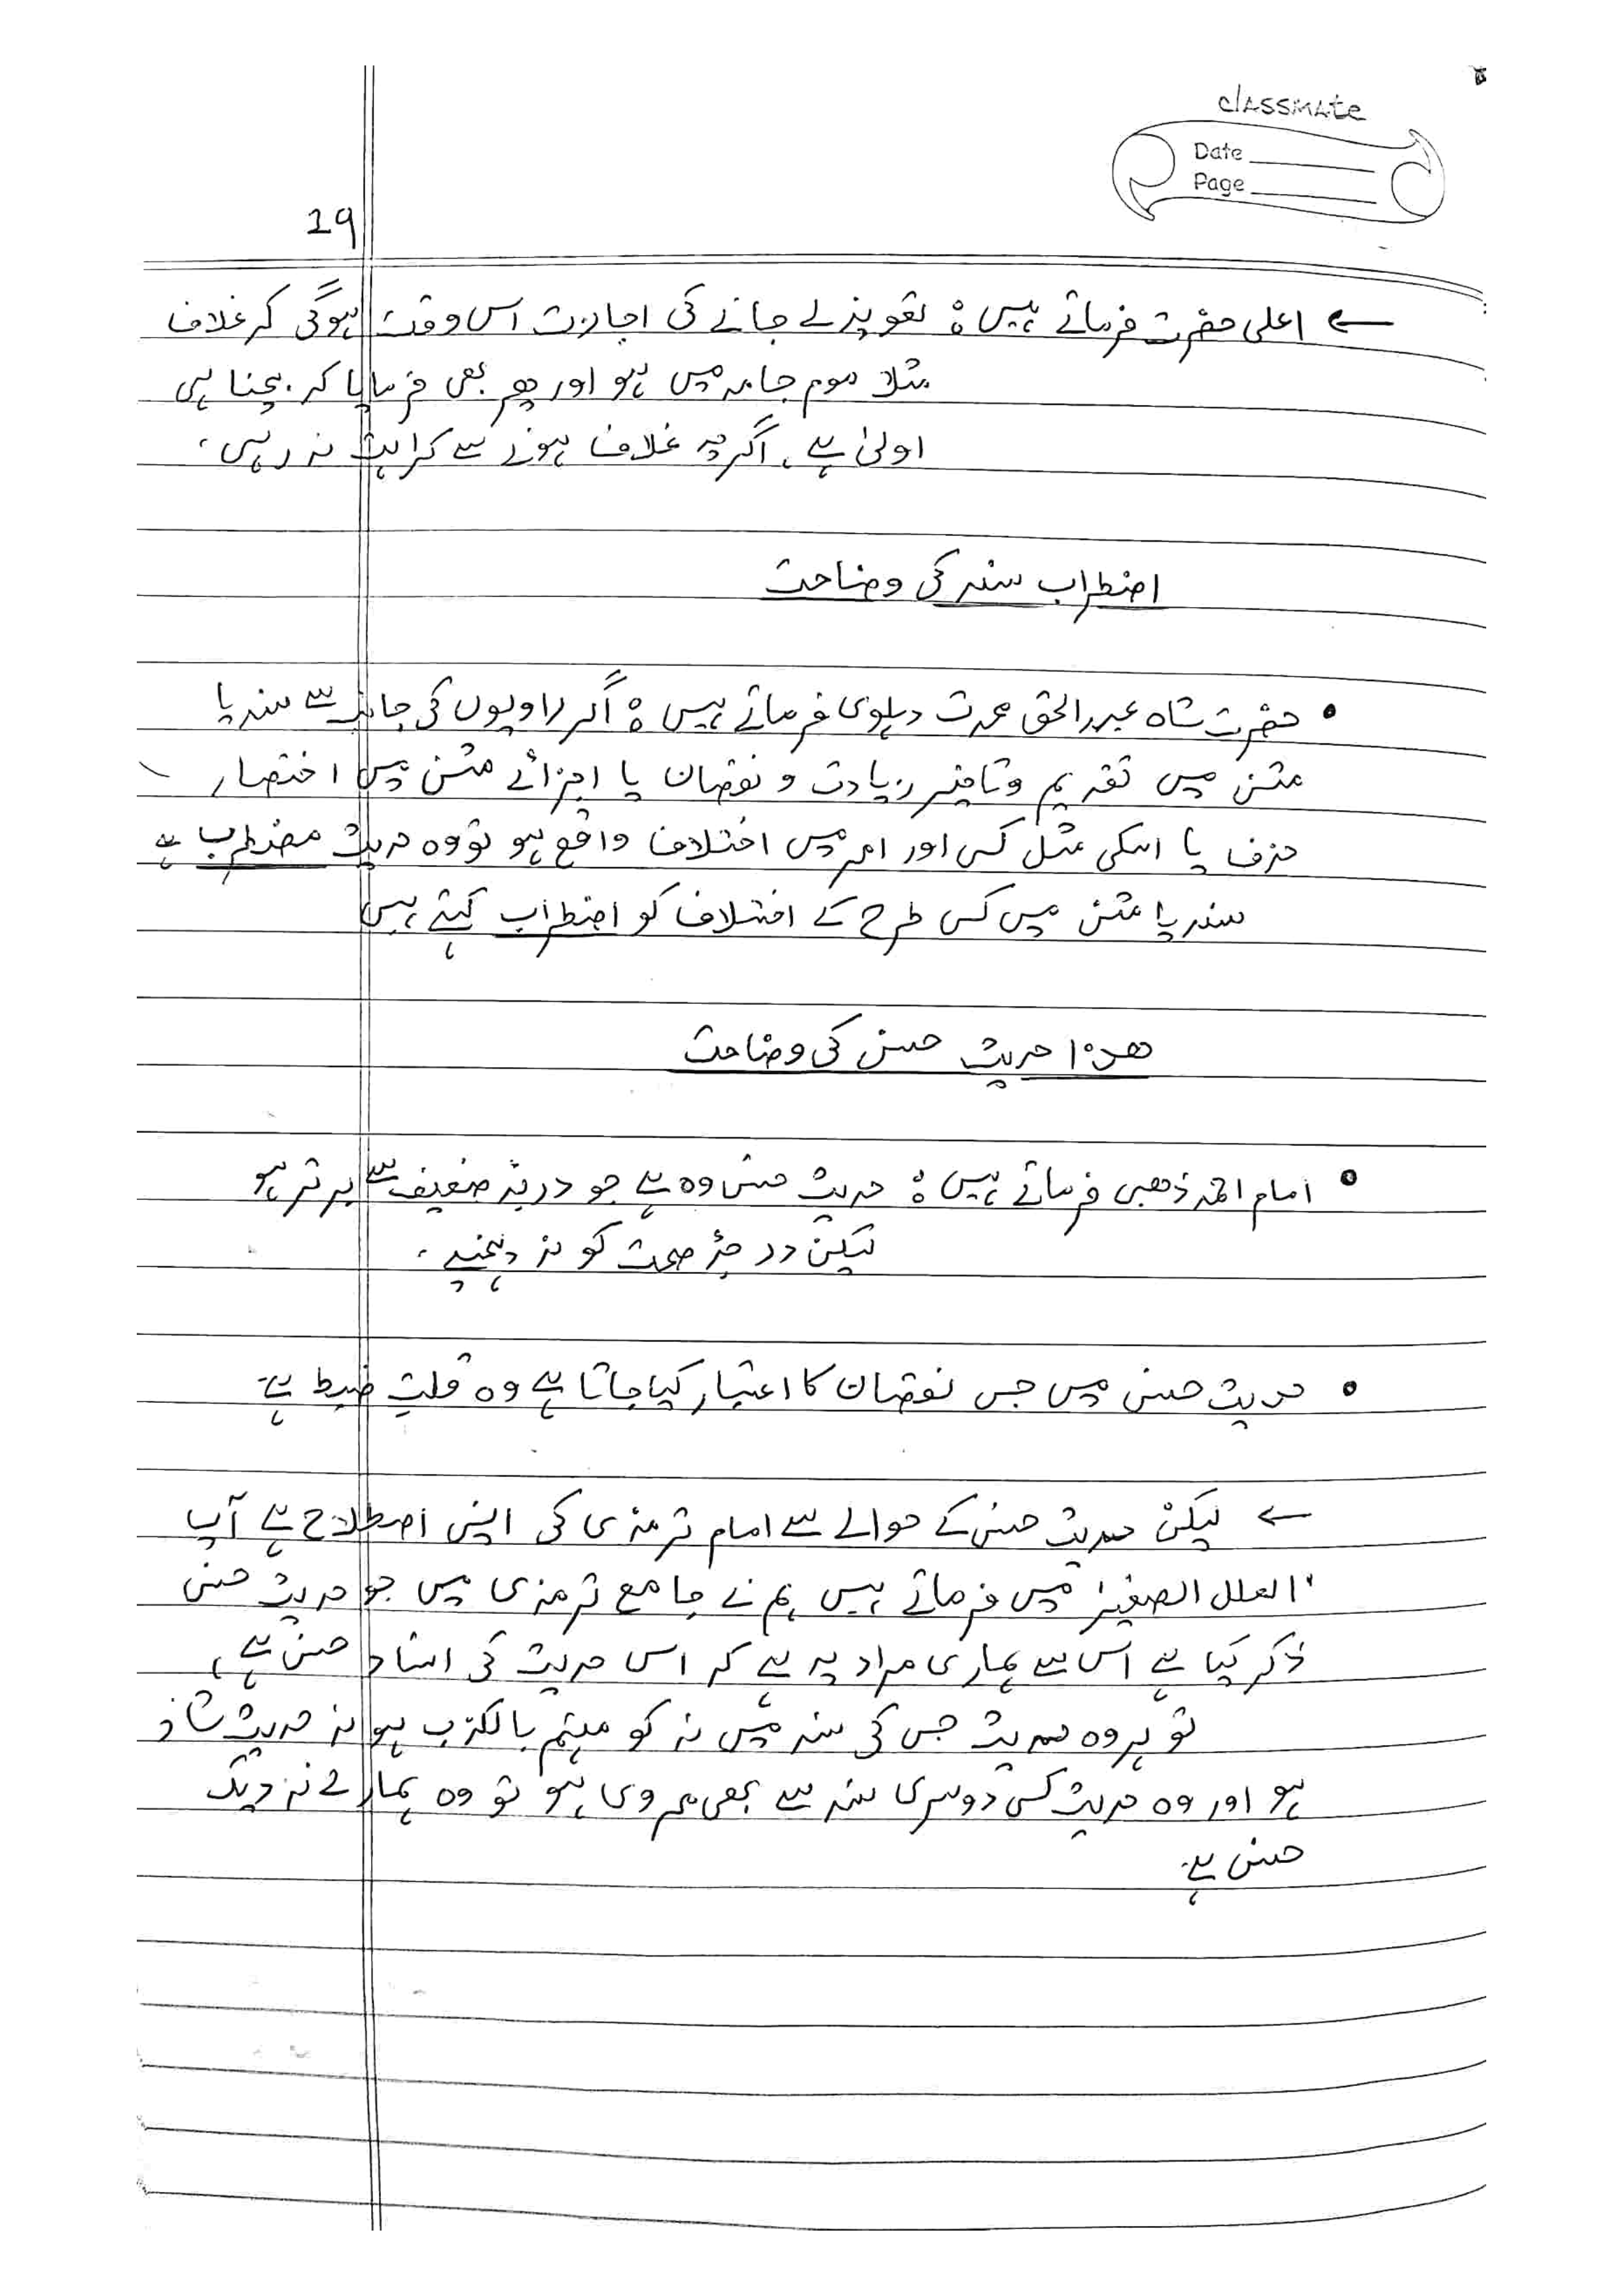 classmate
Date
Page
19
← اعلی حضرت فرماتے ہیں : تعویذ لے جانے کی اجازت اس وقت ہوگی کہ غلاف
مثلا موم جامہ میں ہو اور پھر بھی فرمایا کہ بچنا ہی
اولیٰ ہے ، اگرچہ غلاف ہونے سے کراہت نہ رہی ،
اضطراب سند کی وضاحت
• حضرت شاہ عبد الحق محدث دہلوی فرماتے ہیں : اگر راویوں کی جانب سے سند یا
متن میں تقدیم و تاخیر زیادت و نقصان یا اجزائے متن میں اختصار
حذف یا اسکی مثل کسی اور امر میں اختلاف واقع ہو تو وہ حدیث مضطرب ہے
سند یا متن میں کسی طرح کے اختلاف کو اضطراب کہتے ہیں
ھذا حدیث حسن کی وضاحت
• امام احمد ذھبی فرماتے ہیں : حدیث حسن وہ ہے جو درجۂ ضعیف سے برتر ہو
لیکن درجۂ صحت کو نہ پہنچے ،
• حدیث حسن میں جس نقصان کا اعتبار کیا جاتا ہے وہ قلتِ ضبط ہے۔
← لیکن حدیث حسن کے حوالے سے امام ترمذی کی اپنی اصطلاح ہے آپ
'العلل الصغیر' میں فرماتے ہیں ہم نے جامع ترمذی میں جو حدیث حسن
ذکر کیا ہے اس سے ہماری مراد یہ ہے کہ اس حدیث کی اسناد حسن ہے ،
تو ہر وہ حدیث جس کی سند میں نہ کو متہم بالکذب ہو نہ حدیث شاذ
ہو اور وہ حدیث کسی دوسری سند سے بھی مروی ہو تو وہ ہمارے نزدیک
حسن ہے۔